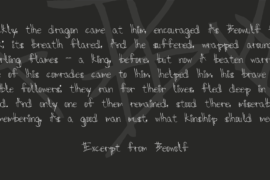 the dragon came at him, encouraged as Beowulf
its breath flared, And he suffered, wrapped around
flames - a king, before, but now A beaten
of his comrades came to him, helped him, his brave
followers; they ran for their lives, fled deep in
And only one of them remained, stood there, miserable
as a good man must, what kinship should
Excerpt from Beowolf